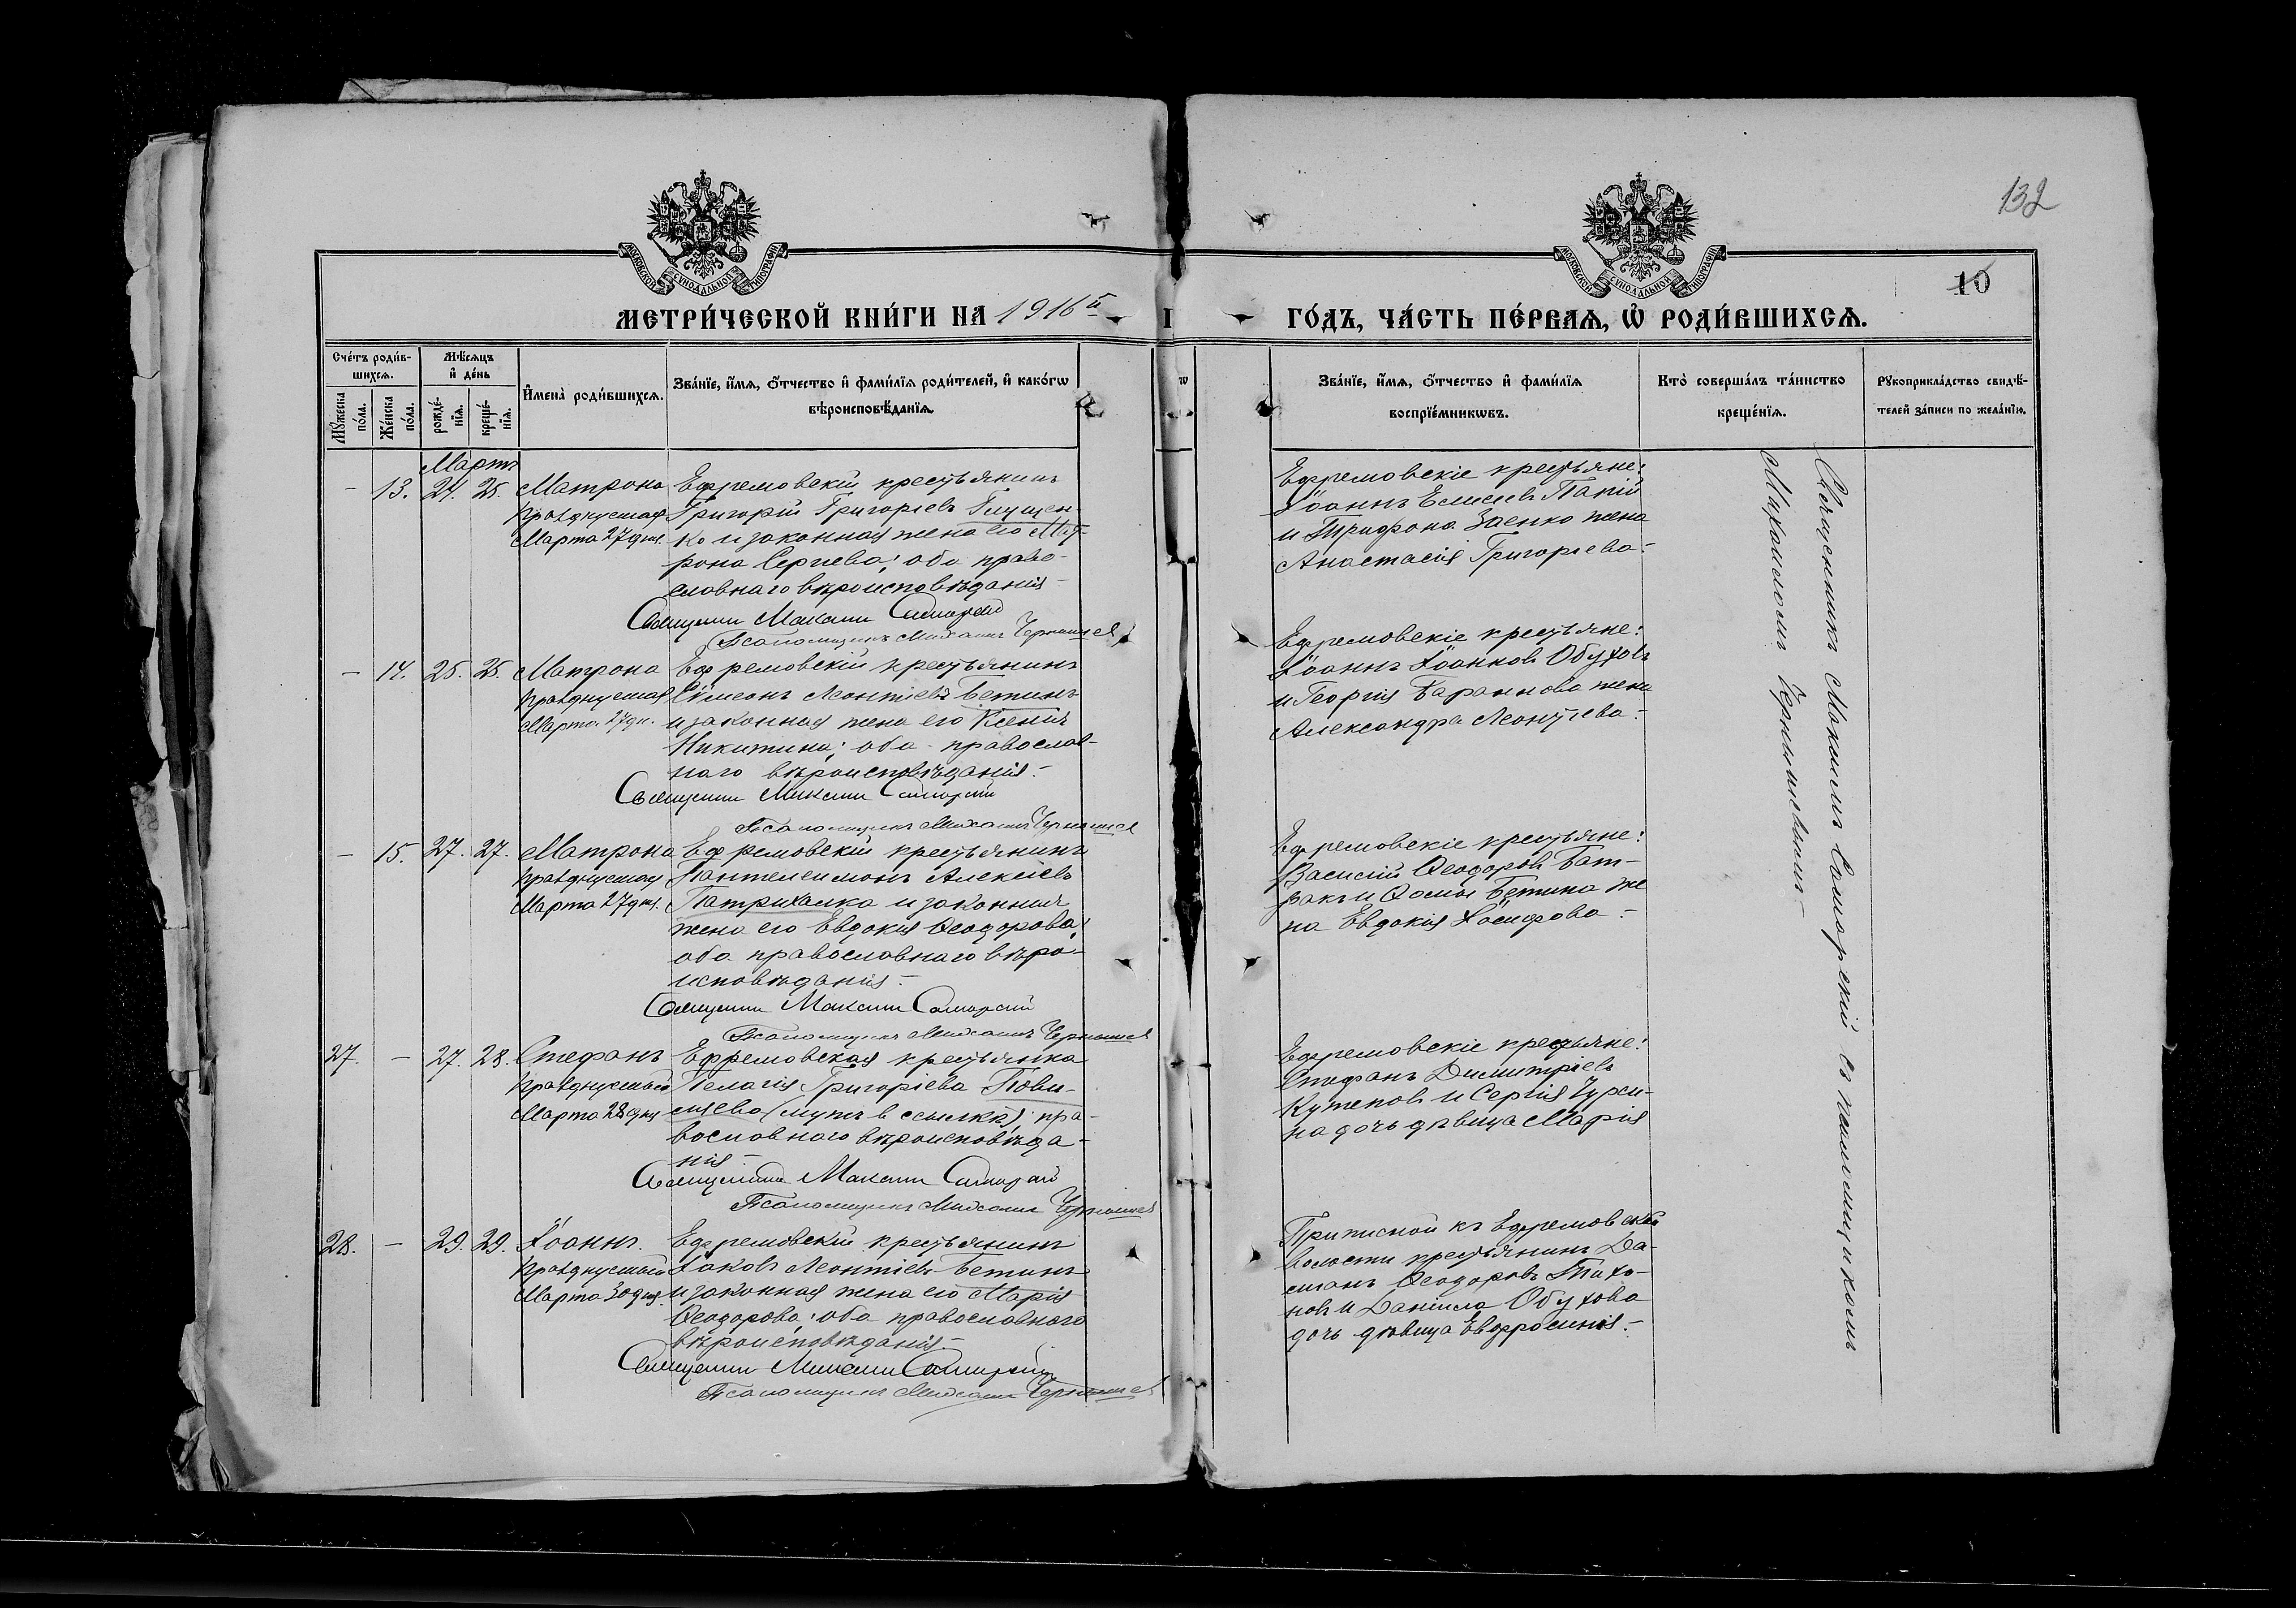 132
10
МЕТРИ́ЧЕСКОЙ КНИ́ГИ НА 1916й
ГО́ДЪ, ЧА́СТЬ ПЕ́РВАЯ, Ѡ҆ РОДИ́ВШИХСѦ.
Сче́тъ роди́в-
шихсѧ.
Мꙋ́жеска по́ла.
Же́нска по́ла.
Мѣ́сѧцъ
и҆ де́нь
рожде́-
нїѧ.
креще́-
нїѧ.
И҆мена̀ роди́вшихсѧ.
Зва́нїе, и҆́мѧ, ѻ҆́тчество и҆ фами́лїѧ роди́телей, и҆ како́гѡ
вѣроисповѣ́данїѧ.
Зва́нїе, и҆́мѧ, ѻ҆́тчество и҆ фами́лїѧ
воспрїе́мникѡвъ.
Кто̀ соверша́лъ та́инство
креще́нїѧ.
Рꙋкоприкла́дство свидѣ́-
телей за́писи по жела́нїю.
Мартъ
– 13. 24. 25. Матрона
празднуемая
Марта 27 дня.
Ефремовскій крестьянинъ
Григорій Григоріевъ Глущен-
ко и законная жена его Мат-
рона Сергіева; оба право-
славнаго вѣроисповѣданія –
Священникъ Максимъ Самарскій
Псаломщикъ Михаилъ Чернышев
Ефремовскіе крестьяне:
Іоаннъ Елисеевъ Папій
и Трифона Заенко жена
Анастасія Григоріева. –
– 14. 25. 25. Матрона
празднуемая
Марта 27 дн.
Ефремовскій крестьянинъ
Симеонъ Леонтіевъ Бетинъ
и законная жена его Ксенія
Никитина; оба православ-
наго вѣроисповѣданія. –
Священникъ Максимъ Самарскій
Псаломщикъ Михаилъ Чернышев
Ефремовскіе крестьяне:
Іоаннъ Іоанновъ Обуховъ
и Георгія Баранова жена
Александра Леонтіева. –
– 15. 27. 27. Матрона
празднуемая
Марта 27 дня.
Ефремовскій крестьянинъ
Пантелеимонъ Алексіевъ
Патрихалка и законная
жена его Евдокія Ѳеодорова;
оба православнаго вѣро-
исповѣданія. –
Священникъ Максимъ Самарскій
Псаломщикъ Михаилъ Чернышев
Ефремовскіе крестьяне:
Василій Ѳеодоровъ Бат-
ракъ и Ѳомы Бетина же
на Евдокія Іосифова. –
27. – 27. 28. Стефанъ
празднуемый
Марта 28 дня
Ефремовская крестьянка
Пелагія Григоріева
(мужъ в ссылкѣ); пра-
вославнаго вѣроисповѣда-
нія –
Священникъ Максимъ Самарскій
Псаломщикъ Михаилъ Чернышев
Ефремовскіе крестьяне:
Стефанъ Димитріевъ
Кутеповъ и Сергія
на дочь дѣвица Марія
28. – 29. 29. Іоаннъ.
празднуемый
Марта 30 дня.
Ефремовскій крестьянинъ
Іаковъ Леонтіевъ Бетинъ
и законная жена его Марія
Ѳеодорова; оба православнаго
вѣроисповѣданія. –
Священникъ Максимъ Самарскій
Псаломщикъ Михаилъ Чернышев
Приписной къ Ефремовской
волости крестьянинъ Да-
міанъ Ѳеодоровъ Тихо-
новъ и Даніила Обухова
дочь дѣвица Евфросинія. –
Священникъ Максимъ Самарскій съ псаломщикомъ
Михаиломъ Чернышевымъ –